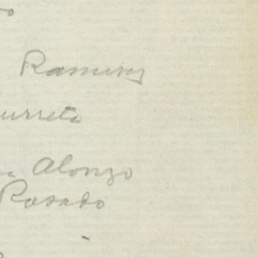 Ramirez
urreta
Alonzo
Rosado